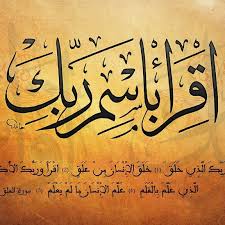 اقرأ باسم ربك
ربك الذي خلق (1) خلق الإنسان من علق (2) اقرأ وربك الأك
الذي علم بالقلم (4) علم الإنسان ما لم يعلم (5) سورة العلق